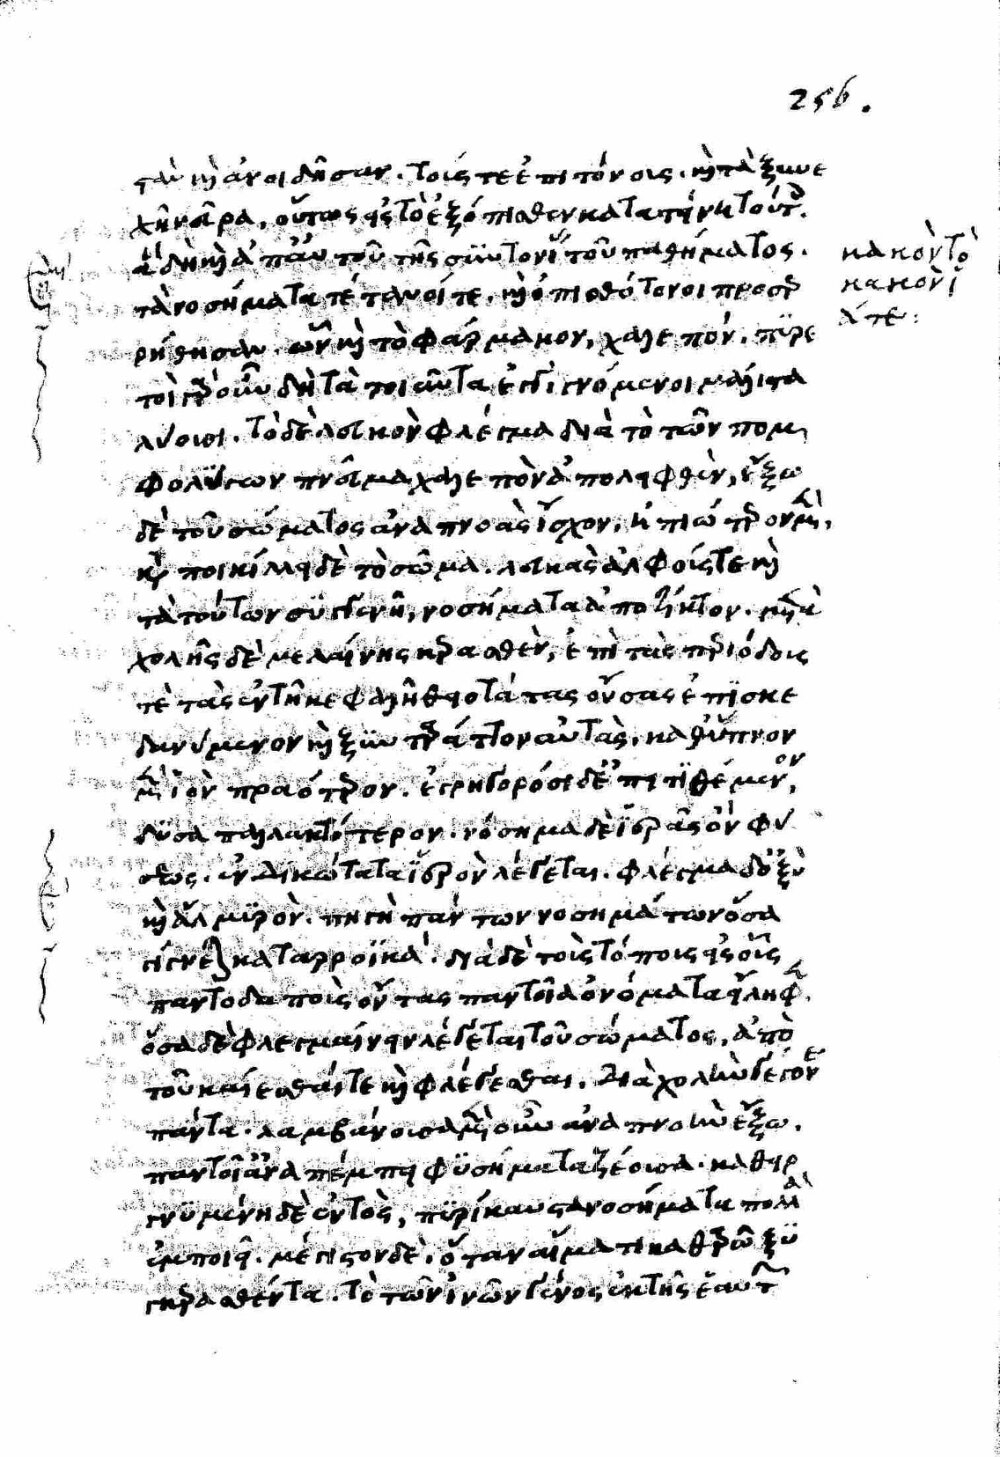 256.
ςὰν καὶ ἀνοιδῆσαν. τοῖς τε ἐπιτόνοις. καὶ τὰ ξυνε
χῆ νεῦρα, οὕτως εἰς τὸ ἐξόπισθεν κατατείνῃ τούτοις.
ἃ δὴ καὶ ἀπ' αὐτοῦ τῆς συντονίας τοῦ παθήματος.
τὰ νοσήματα τέτανοί τε, καὶ ὀπισθότονοι προσερ
ρήθησαν. ὧν καὶ τὸ φάρμακον, χαλεπόν. πυρε
τοὶ γὰρ οὖν δὴ τὰ τοιαῦτα ἐπιγιγνόμενοι μάλιστα
λύουσι. τὸ δὲ λευκὸν φλέγμα διὰ τὸ τῶν πομ
φολύγων πνεῦμα χαλεπὸν ἀποληφθὲν, ἔξω
δὲ τοῦ σώματος ἀναπνοὰς ἴσχον, ἠπιώτερον μὲν,
καταποικίλλει δὲ τὸ σῶμα. λευκὰς ἀλφούς τε καὶ
τὰ τούτων συγγενῆ, νοσήματα ἀποτίκτον. μετὰ
χολῆς δὲ μελαίνης κερασθὲν, ἐπὶ τὰς περιόδους
τὲ τὰς ἐν τῇ κεφαλῇ θειοτάτας οὔσας ἐπισκε
δαννύμενον καὶ ξυνταράττον αὐτὰς, καθ' ὕπνον
μὲν ἰὸν πραότερον. ἐγρηγορόσι δ' ἐπιτιθέμενον,
δυσαπαλλακτότερον. νόσημα δὲ ἱερᾶς ὂν φύ
σεως. ἐνδικώτατα ἱερὸν λέγεται. φλέγμα δ' ὀξὺ
καὶ ἁλμυρὸν. πηγὴ πάντων νοσημάτων ὅσα
γίγνεται καταρροϊκά. διὰ δὲ τοὺς τόπους εἰς οὓς
παντοδαποὺς ὄντας παντοῖα ὀνόματα εἴληφεν.
ὅσα δὲ φλεγμαίνειν λέγεται τοῦ σώματος, ἀπὸ
τοῦ καίεσθαί τε καὶ φλέγεσθαι, διὰ χολὴν γέγονε
πάντα. λαμβάνουσα μὲν οὖν ἀναπνοὴν ἔξω.
παντοῖα ἀναπέμπει φυσήματα ζέουσα. καθειρ
γνυμένη δὲ ἐντὸς, πυρίκαυςα νοσήματα πολλὰ
ἐμποιεῖ. μέγιςον δὲ, ὅταν αἵματι καθαρῷ ξυ
γκερασθέντα. τὸ τῶν ἰνῶν γένος ἐκ τῆς ἑαυτῶν
κακὸν τὸ
κακὸν ἰ
ᾶται: